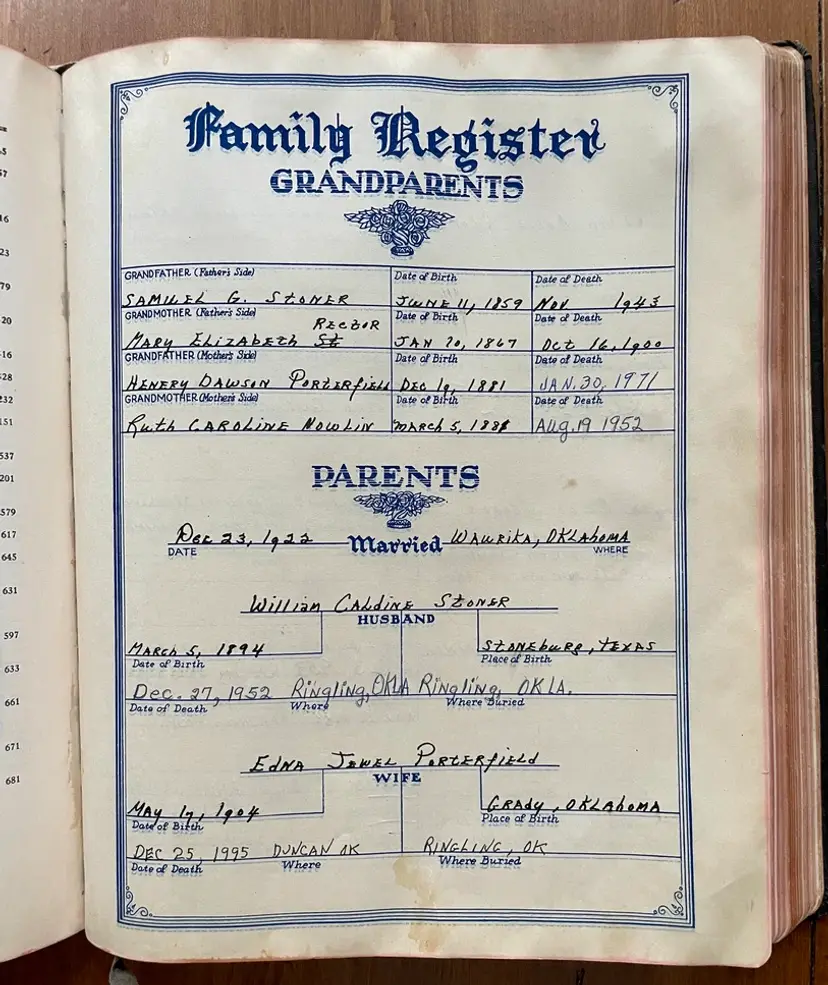 5
57
16
23
79
20
16
528
232
151
537
201
579
617
645
631
597
633
661
671
681
Family Register
GRANDPARENTS
GRANDFATHER (Father's Side) Date of Birth Date of Death
SAMUEL G. STONER JUNE 11, 1859 NOV 1943
GRANDMOTHER (Father's Side) Date of Birth Date of Death
RECTOR
MARY ELIZABETH St JAN 20, 1867 OCT 16, 1900
GRANDFATHER (Mother's Side) Date of Birth Date of Death
HENERY DAWSON PORTERFIELD DEC 19, 1881 JAN. 30, 1971
GRANDMOTHER (Mother's Side) Date of Birth Date of Death
Ruth CAROLINE NOWLIN MARCH 5, Aug. 19 1952
PARENTS
Dec 23, 1922 Married WAURIKA, OKLAHOMA
DATE WHERE
William CALdINE STONER
HUSBAND
MARCH 5, 1894 STONEburg, TEXAS
Date of Birth Place of Birth
Dec. 27, 1952 Ringling, OKLA Ringling, OKLA.
Date of Death Where Where Buried
EdNA JEWEL PORTERfiEld
WIFE
MAY 17, 1904 GRADY, OKLAHOMA
Date of Birth Place of Birth
DEC 25, 1995 DUNCAN OK RINGLING, OK
Date of Death Where Where Buried